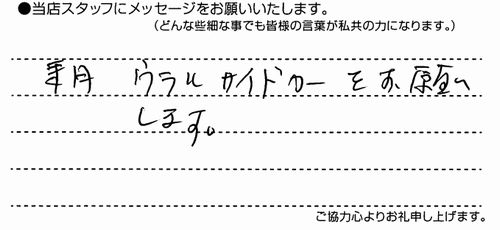 ●当店スタッフにメッセージをお願いいたします。
(どんな些細な事でも皆様の言葉が私共の力になります。)
来月 ウラル サイドカー をお願い
します。
ご協力心よりお礼申し上げます。